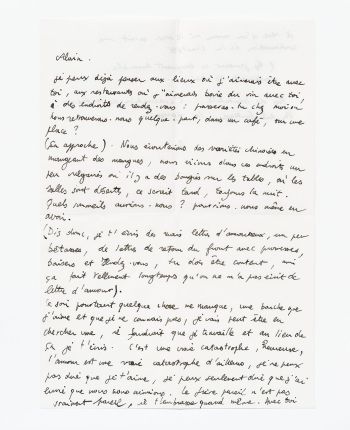 Alain.
je peux déjà penser aux lieux où j'aimerais être avec
toi, aux restaurants où j'aimerais boire du vin avec toi,
à des endroits de rendez-vous : passeras-tu chez moi ou
nous retrouverons-nous quelque part, dans un café, sur une
place ?
(Ça approche). Nous écouterions des variétés chinoises en
mangeant des mangues, nous irions dans ces endroits un
peu vulgaires où il y a des bougies sur les tables, où les
salles sont désertes, ce serait tard, toujours la nuit.
Quels sommeils aurions-nous ? pourrions-nous même en
avoir.
(Dis donc, je t'écris des vraies lettres d'amoureux, un peu
bêtasses, de lettre de retour du front avec promesses,
baisers et rendez-vous, tu dois être content, moi
ça fait tellement longtemps qu'on ne m'a pas écrit de
lettre d'amour).
Ce soir pourtant quelque chose me manque, une bouche que
j'aime et que je ne connais pas, je vais peut-être en
chercher une, il faudrait que je travaille et au lieu de
ça je t'écris. C'est une vraie catastrophe,
l'amour est une vraie catastrophe d'ailleurs, je ne peux
pas dire que je t'aime, je peux seulement dire que j'ai
envie que nous nous aimions. Le frère pareil n'est pas
vraiment pareil, il t'embrasse quand même. Avec toi